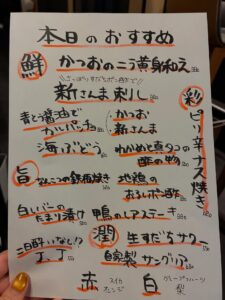 本日のおすすめ
鮮
かつおのニラ黄身和え
さっぱりすだちポン酢で!!
新さんま刺し
彩
ピリ辛ナス焼き
青とう醤油で
カルパッチョ
かつお
新さんま
海ぶどう
わかめと真ダコの
酢の物
旨
なんこつの鉄板焼き
地鶏の
おろしポン酢
白レバーの
たまり漬け
鴨のレアステーキ
潤
生すだちサワー
二日酔いなし!?
自家製サングリア
赤
スイカ
オレンジ
白
グレープフルーツ
梨